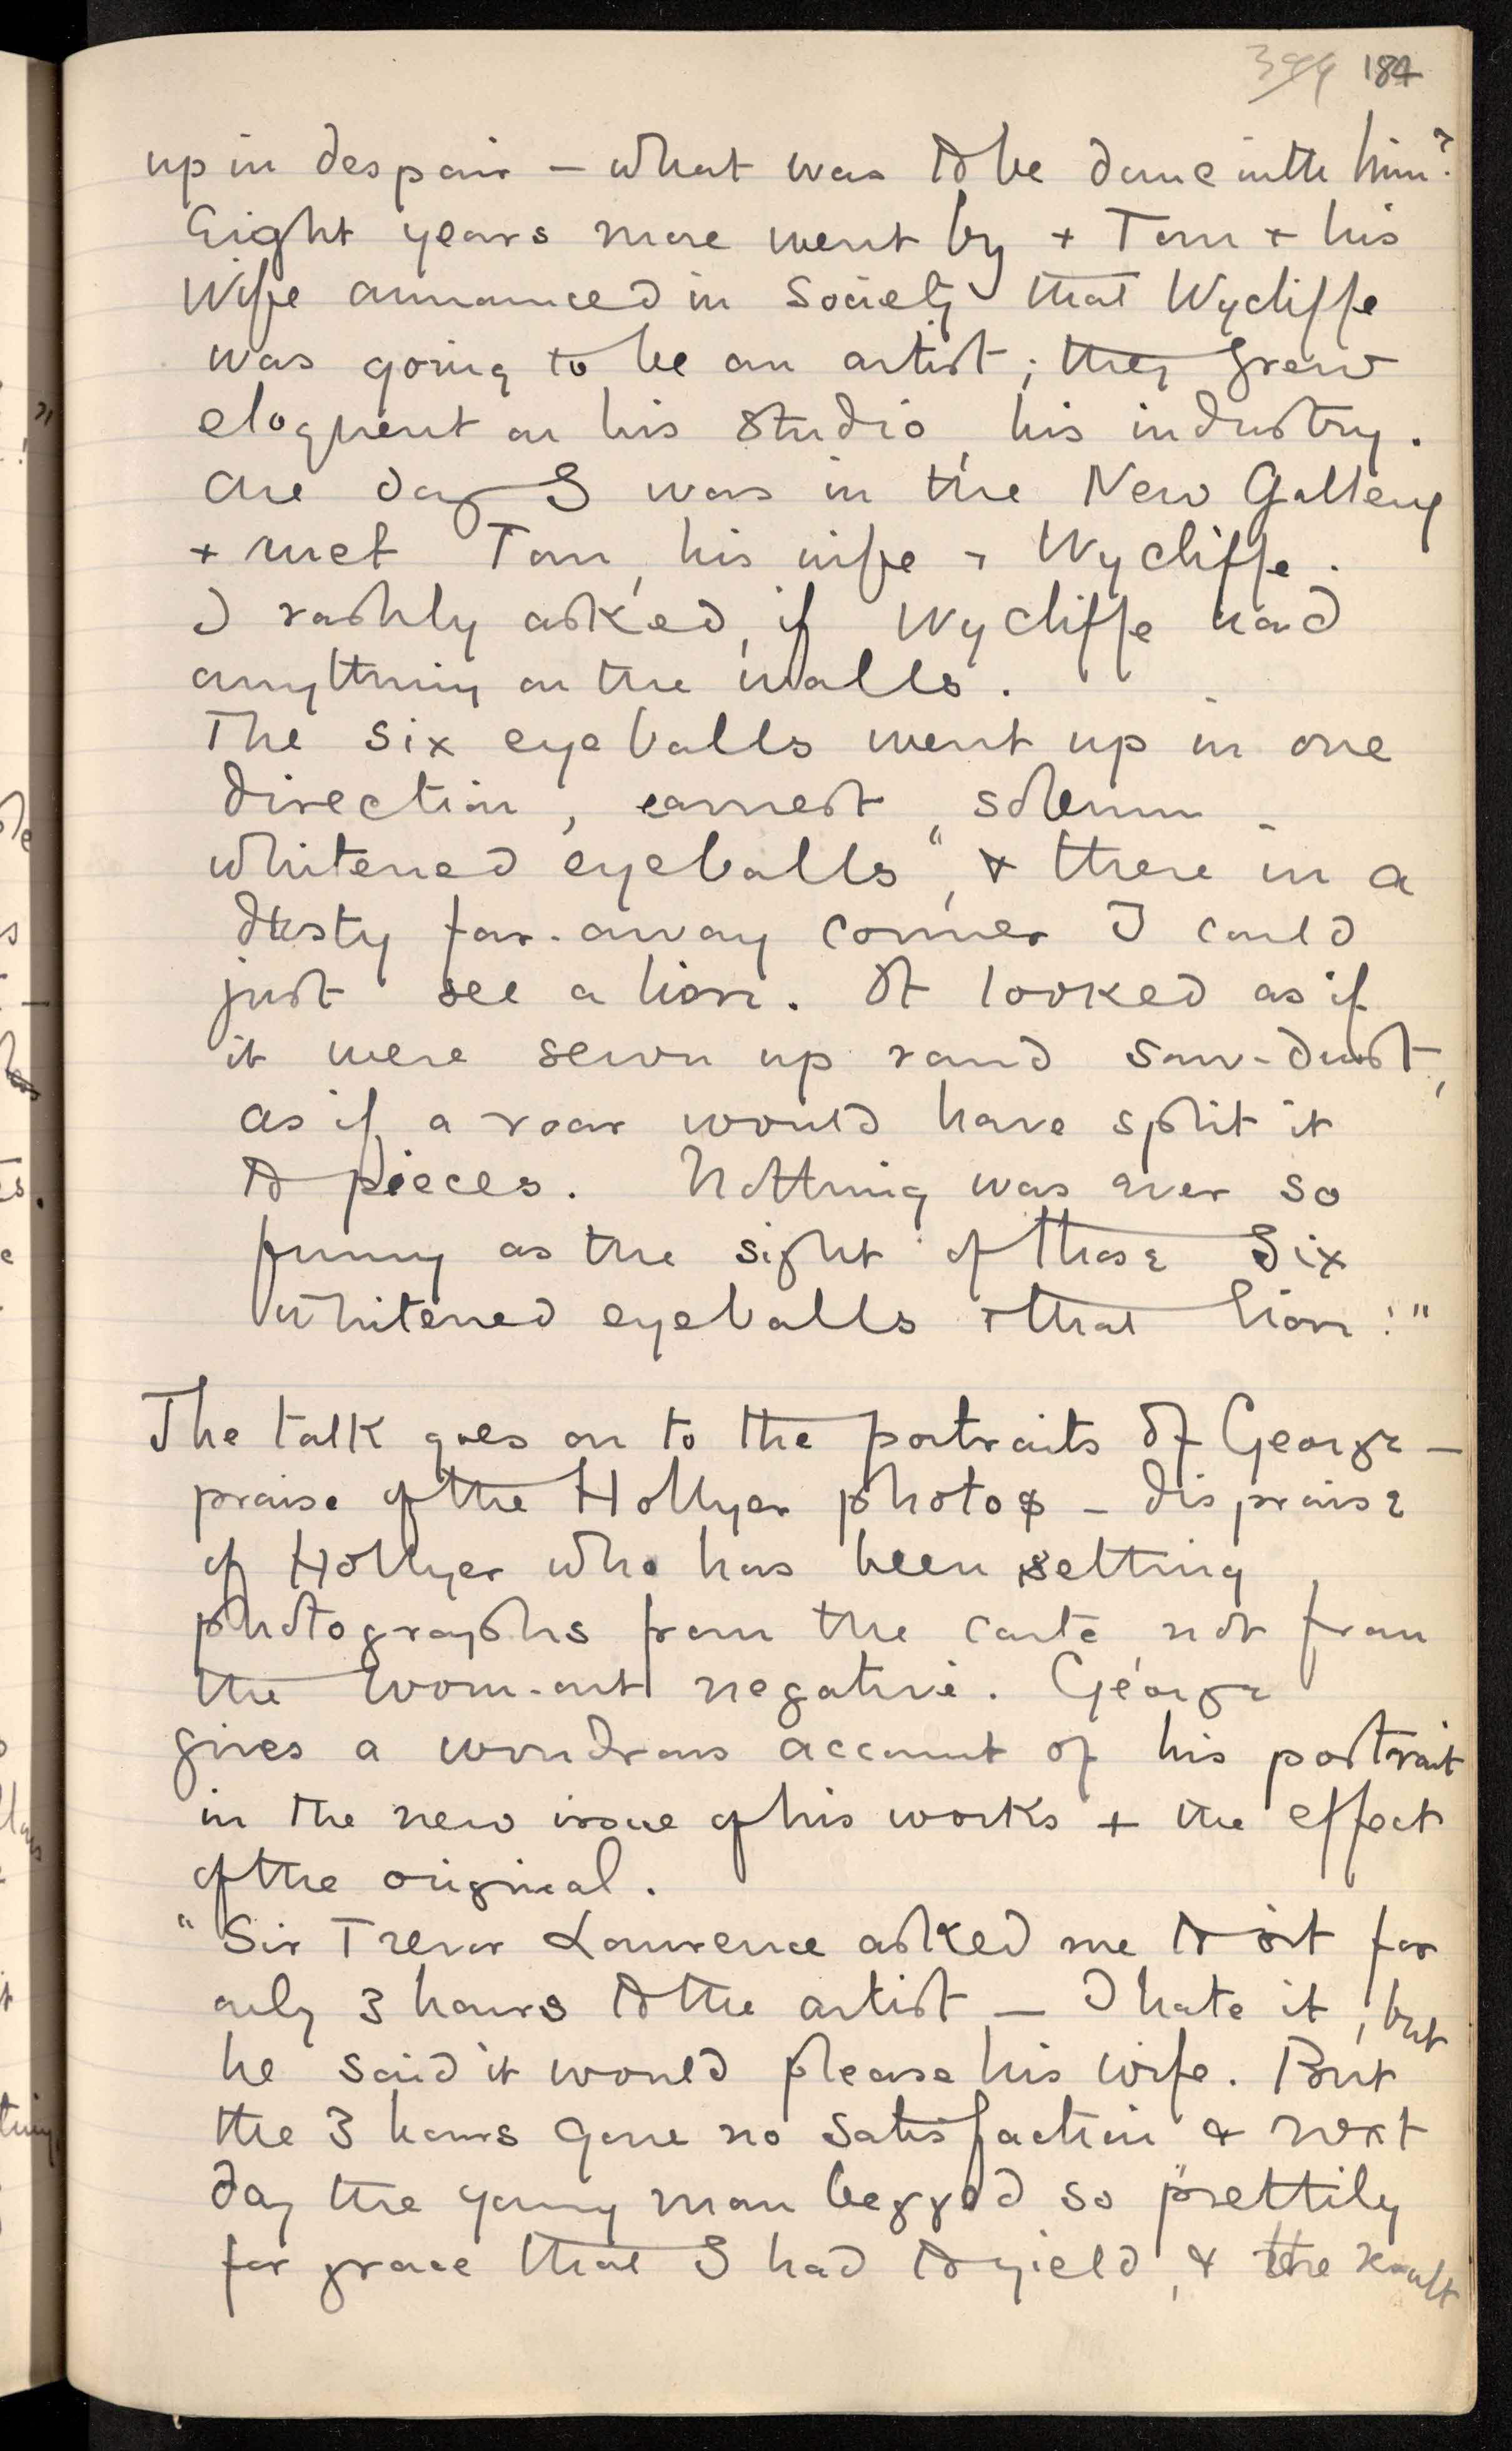 184
up in despair – what was to be done with him?
Eight years more went by + Tom + his
Wife announced in Society that Wycliffe
was going to be an artist; they grew
eloquent on his studio, his industry.
One day I was in the New Gallery
+ met Tom, his wife + Wycliffe.
I rashly asked, if Wycliffe had
anything on the walls.
The six eyeballs went up in one
direction, earnest, solemn –
whitened eyeballs", & there in a
dusty far-away corner I could
just see a lion. It looked as if
it were sewn up round saw-dust,
as if a roar would have split it
to pieces. Nothing was ever so
funny as the sight of those six
whitened eyeballs + that lion!"
The talk goes on to the portraits of George –
praise of the Hollyer photos – dispraise
of Hollyer who has been selling
photographs from the carte not from
the worn-out negative. George
gives a wondrous account of his portrait
in the new issue of his works + the effect
of the original.
"Sir Trevor Lawrence asked me to sit for
only 3 hours to the artist – I hate it, but
he said it would please his wife. But
the 3 hours gave no satisfaction & next
day the young man begged so prettily
for grace that I had to yield, & the result